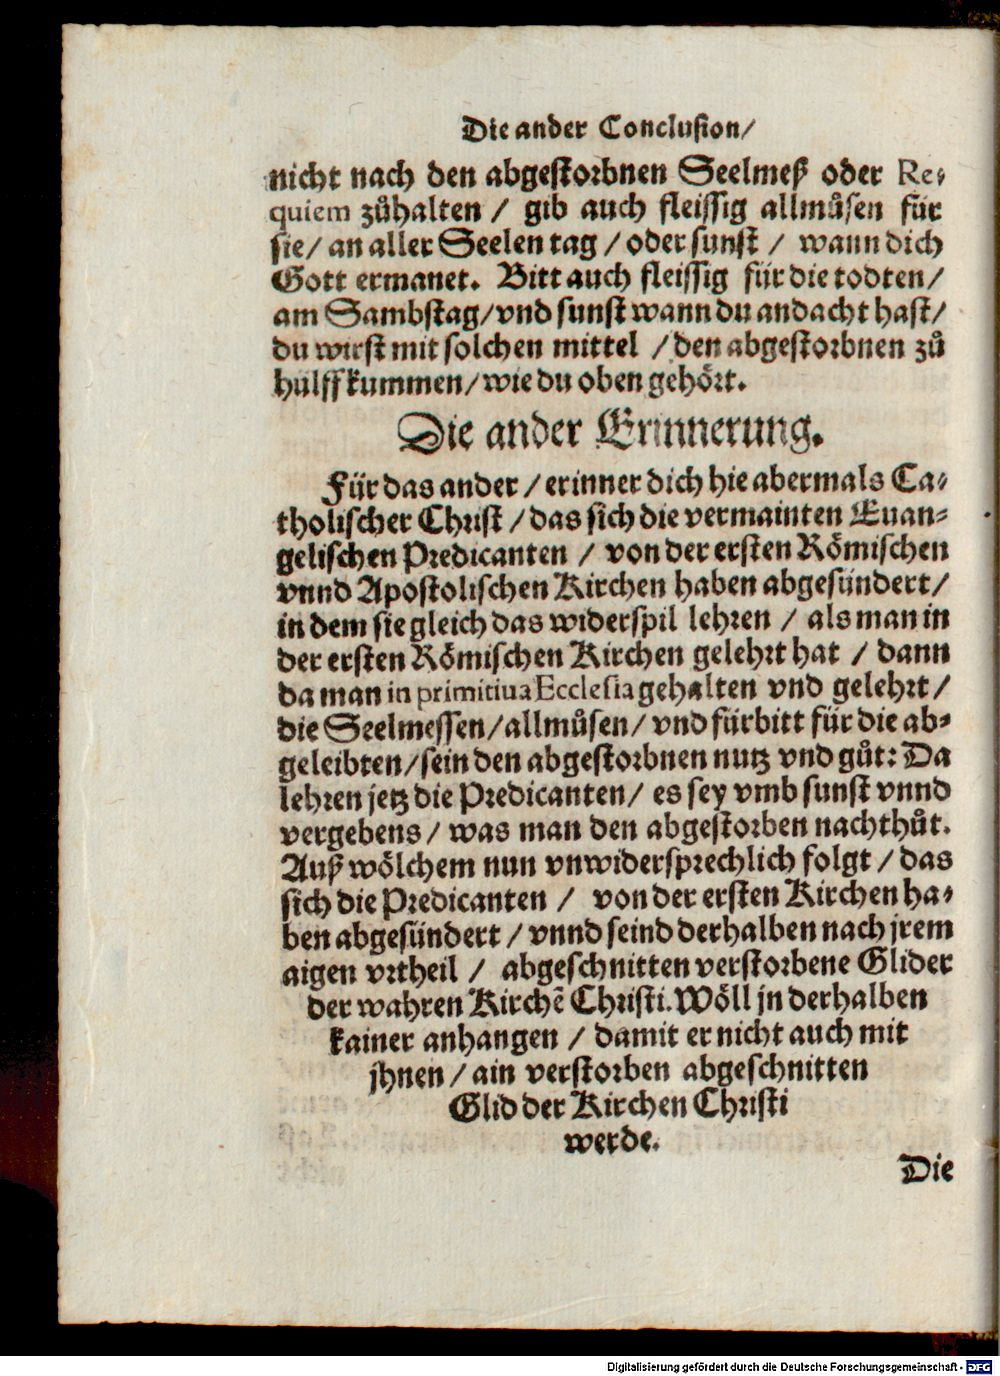 Die ander Conclusion/
nicht nach den abgestorbnen Seelmeß oder Re-
quiem zůhalten / gib auch fleissig allmůsen für
sie/ an aller Seelen tag / oder sunst / wann dich
Gott ermanet. Bitt auch fleissig für die todten/
am Sambstag/vnd sunst wann du andacht hast/
du wirst mit solchen mittel / den abgestorbnen zů
hülff kummen/ wie du oben gehört.
Die ander Erinnerung.
Für das ander / erinner dich hie abermals Ca-
tholischer Christ / das sich die vermainten Euan-
gelischen Predicanten / von der ersten Römischen
vnnd Apostolischen Kirchen haben abgesündert/
in dem sie gleich das widerspil lehren / als man in
der ersten Römischen Kirchen gelehrt hat / dann
da man in primitiua Ecclesia gehalten vnd gelehrt/
die Seelmessen/allmůsen/ vnd fürbitt für die ab-
geleibten/sein den abgestorbnen nutz vnd gůt: Da
lehren jetz die Predicanten/ es sey vmb sunst vnnd
vergebens/ was man den abgestorben nachthůt.
Auß wölchem nun vnwidersprechlich folgt / das
sich die Predicanten / von der ersten Kirchen ha-
ben abgesündert / vnnd seind derhalben nach jrem
aigen vrtheil / abgeschnitten verstorbene Glider
der wahren Kirchẽ Christi. Wöll jn derhalben
kainer anhangen / damit er nicht auch mit
jhnen / ain verstorben abgeschnitten
Glid der Kirchen Christi
werde.
Die
Digitalisierung gefördert durch die Deutsche Forschungsgemeinschaft - DFG